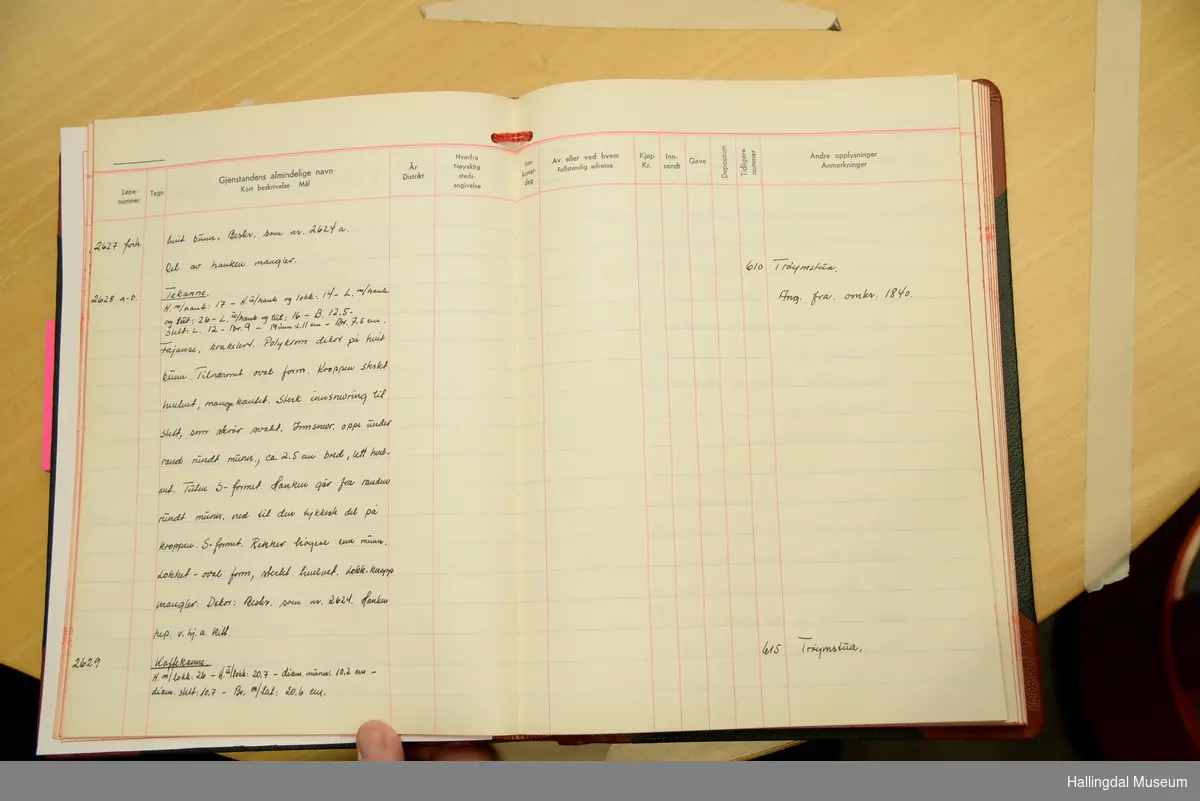 Løpe-
nummer
Tegn
Gjenstandens almindelige navn
Kort beskrivelse Mål
År
Distrikt
Hvorfra
Nøyaktig
steds-
angivelse
Inn-
komst-
dag
Av eller ved hvem
Fullstendig adresse
Kjøp
Kr.
Inn-
sendt
Gave
Depositum
Tidligere
nummer
Andre opplysninger
Anmerkninger
2627 forts. hvit bunn. Beskr. som nr. 2624 a.
Del av hanken mangler.
2628 a-b. Tekanne. 610 Trøymstua.
H. m/hank: 17 - H. u/hank og lokk: 14 - L. m/hank
og tut: 26 - L. u/hank og tut: 16 - B. 12,5 -
Stett: L. 12 - Br. 9 - Munn: L. 11 cm - Br. 7,5 cm.
Ang. fra. omkr. 1840.
Fajanse, krakelert. Polykrom dekor på hvit
bunn. Tilnærmet oval form. Kroppen sterkt
hvelvet, mangekantet. Sterk innsnøring til
stett, som skrår svakt. Innsnør. oppe under
rand rundt munn, ca. 2.5 cm bred, lett hvel-
vet. Tuten S-formet. Hanken går fra randen
rundt munn, ned til den tykkeste del på
kroppen. S-formet. Rekker høyere enn munn.
Lokket - oval form, sterkt hvelvet. Lokk-knapp
mangler. Dekor: Beskr. som nr. 2624. Hanken
rep. v. hj. a. kitt.
2629 Kaffekanne. 615 Trøymstua.
H. m/lokk: 26 - H. u/lokk: 20.7 - diam. munn: 10.2 cm -
diam. stett: 10,7 - Br. m/tut: 20.6 cm.
Hallingdal Museum